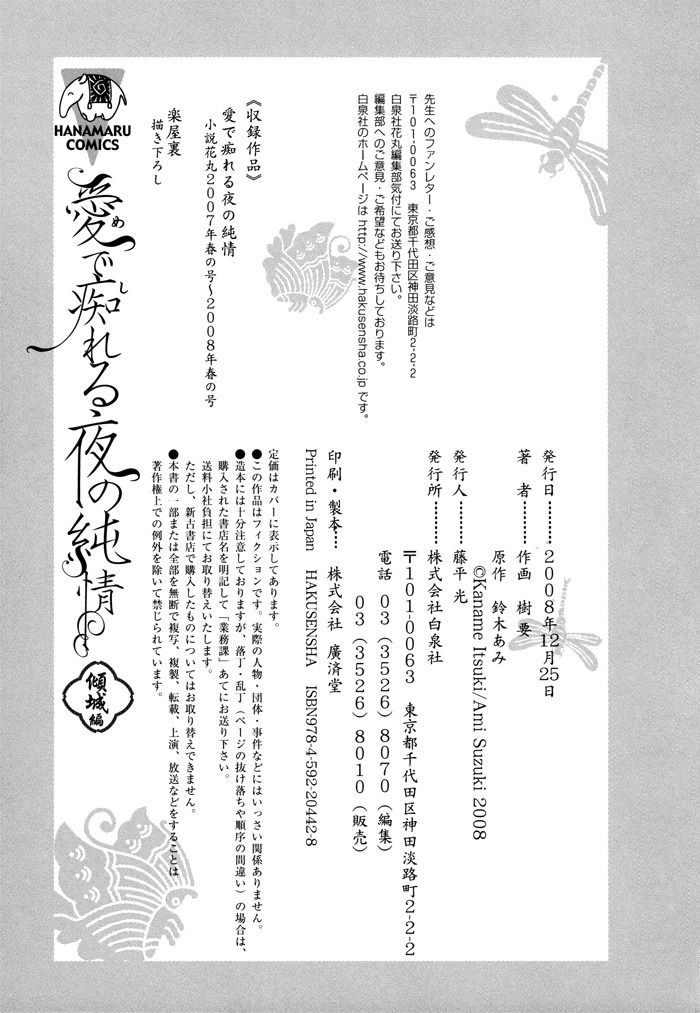 先生へのファンレター・ご感想・ご意見などは
〒101-0063　東京都千代田区神田淡路町2-2-2
白泉社花丸編集部気付にてお送り下さい。
編集部へのご意見・ご希望などもお待ちしております。
白泉社のホームページは http://www.hakusensha.co.jp です。
《収録作品》
愛で痴れる夜の純情
小説花丸2007年春の号〜2008年春の号
楽屋裏
描き下ろし
HANAMARU
COMICS
愛で痴れる夜の純情
め
し
傾城編
発行日………2008年12月25日
著　者………作画　樹　要
原作　鈴木あみ
©Kaname Itsuki/Ami Suzuki 2008
発行人………藤平　光
発行所………株式会社白泉社
〒101-0063　東京都千代田区神田淡路町2-2-2
電話　03（3526）8070（編集）
03（3526）8010（販売）
印刷・製本…　株式会社　廣済堂
Printed in Japan　HAKUSENSHA　ISBN978-4-592-20442-8
定価はカバーに表示してあります。
●この作品はフィクションです。実際の人物・団体・事件などにはいっさい関係ありません。
●造本には十分注意しておりますが、落丁・乱丁（ページの抜け落ちや順序の間違い）の場合は、
購入された書店名を明記して「業務課」あてにお送り下さい。
送料小社負担にてお取り替えいたします。
ただし、新古書店で購入したものについてはお取り替えできません。
●本書の一部または全部を無断で複写、複製、転載、上演、放送などをすることは
著作権上での例外を除いて禁じられています。